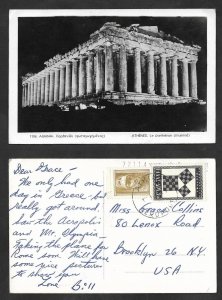 ATHENES. Le parthénon (illuminé)
Dear Grace –
We only had one
day in Greece but
really got around
saw the Acropolis
and Mt. Olympia –
Taking the plane for
Rome soon. Will have
some nice pictures
to show you
Love Bill
Miss Grace Collins
50 Lenox Road
Brooklyn 26 N.Y.
USA